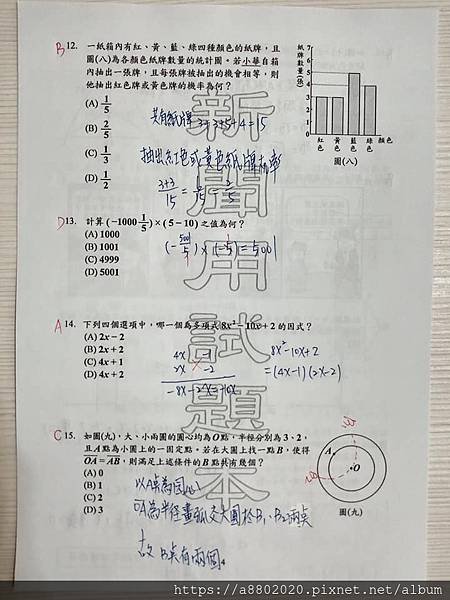 B 12. 一紙箱內有紅、黃、藍、綠四種顏色的紙牌，且
圖(八)為各顏色紙牌數量的統計圖。若小華自箱
內抽出一張牌，且每張牌被抽出的機會相等，則
他抽出紅色牌或黃色牌的機率為何？
(A) 1/5
(B) 2/5
(C) 1/3
(D) 1/2
紙牌數量(張)
7
6
5
4
3
2
1
紅色 黃色 藍色 綠色 顏色
圖(八)
共有紙牌 3+3+5+4=15
抽出紅色或黃色紙牌機率
(3+3)/15 = 6/15 = 2/5
D 13. 計算 (-1000 1/5) × (5-10) 之值為何？
(A) 1000
(B) 1001
(C) 4999
(D) 5001
(-5001/5) × (-5) = 5001
A 14. 下列四個選項中，哪一個為多項式 8x²-10x+2 的因式？
(A) 2x-2
(B) 2x+2
(C) 4x+1
(D) 4x+2
4x -1
2x -2
-8x-2x=-10x
8x²-10x+2
=(4x-1)(2x-2)
C 15. 如圖(九)，大、小兩圓的圓心均為O點，半徑分別為3、2，
且A點為小圓上的一固定點。若在大圓上找一點B，使得
OA=AB，則滿足上述條件的B點共有幾個？
(A) 0
(B) 1
(C) 2
(D) 3
A
O
B₁
B₂
圖(九)
以A為圓心
OA為半徑畫弧交大圓於B₁、B₂兩點
故B點有兩個
4
新聞用試題本
https://a8802020.pixnet.net/album